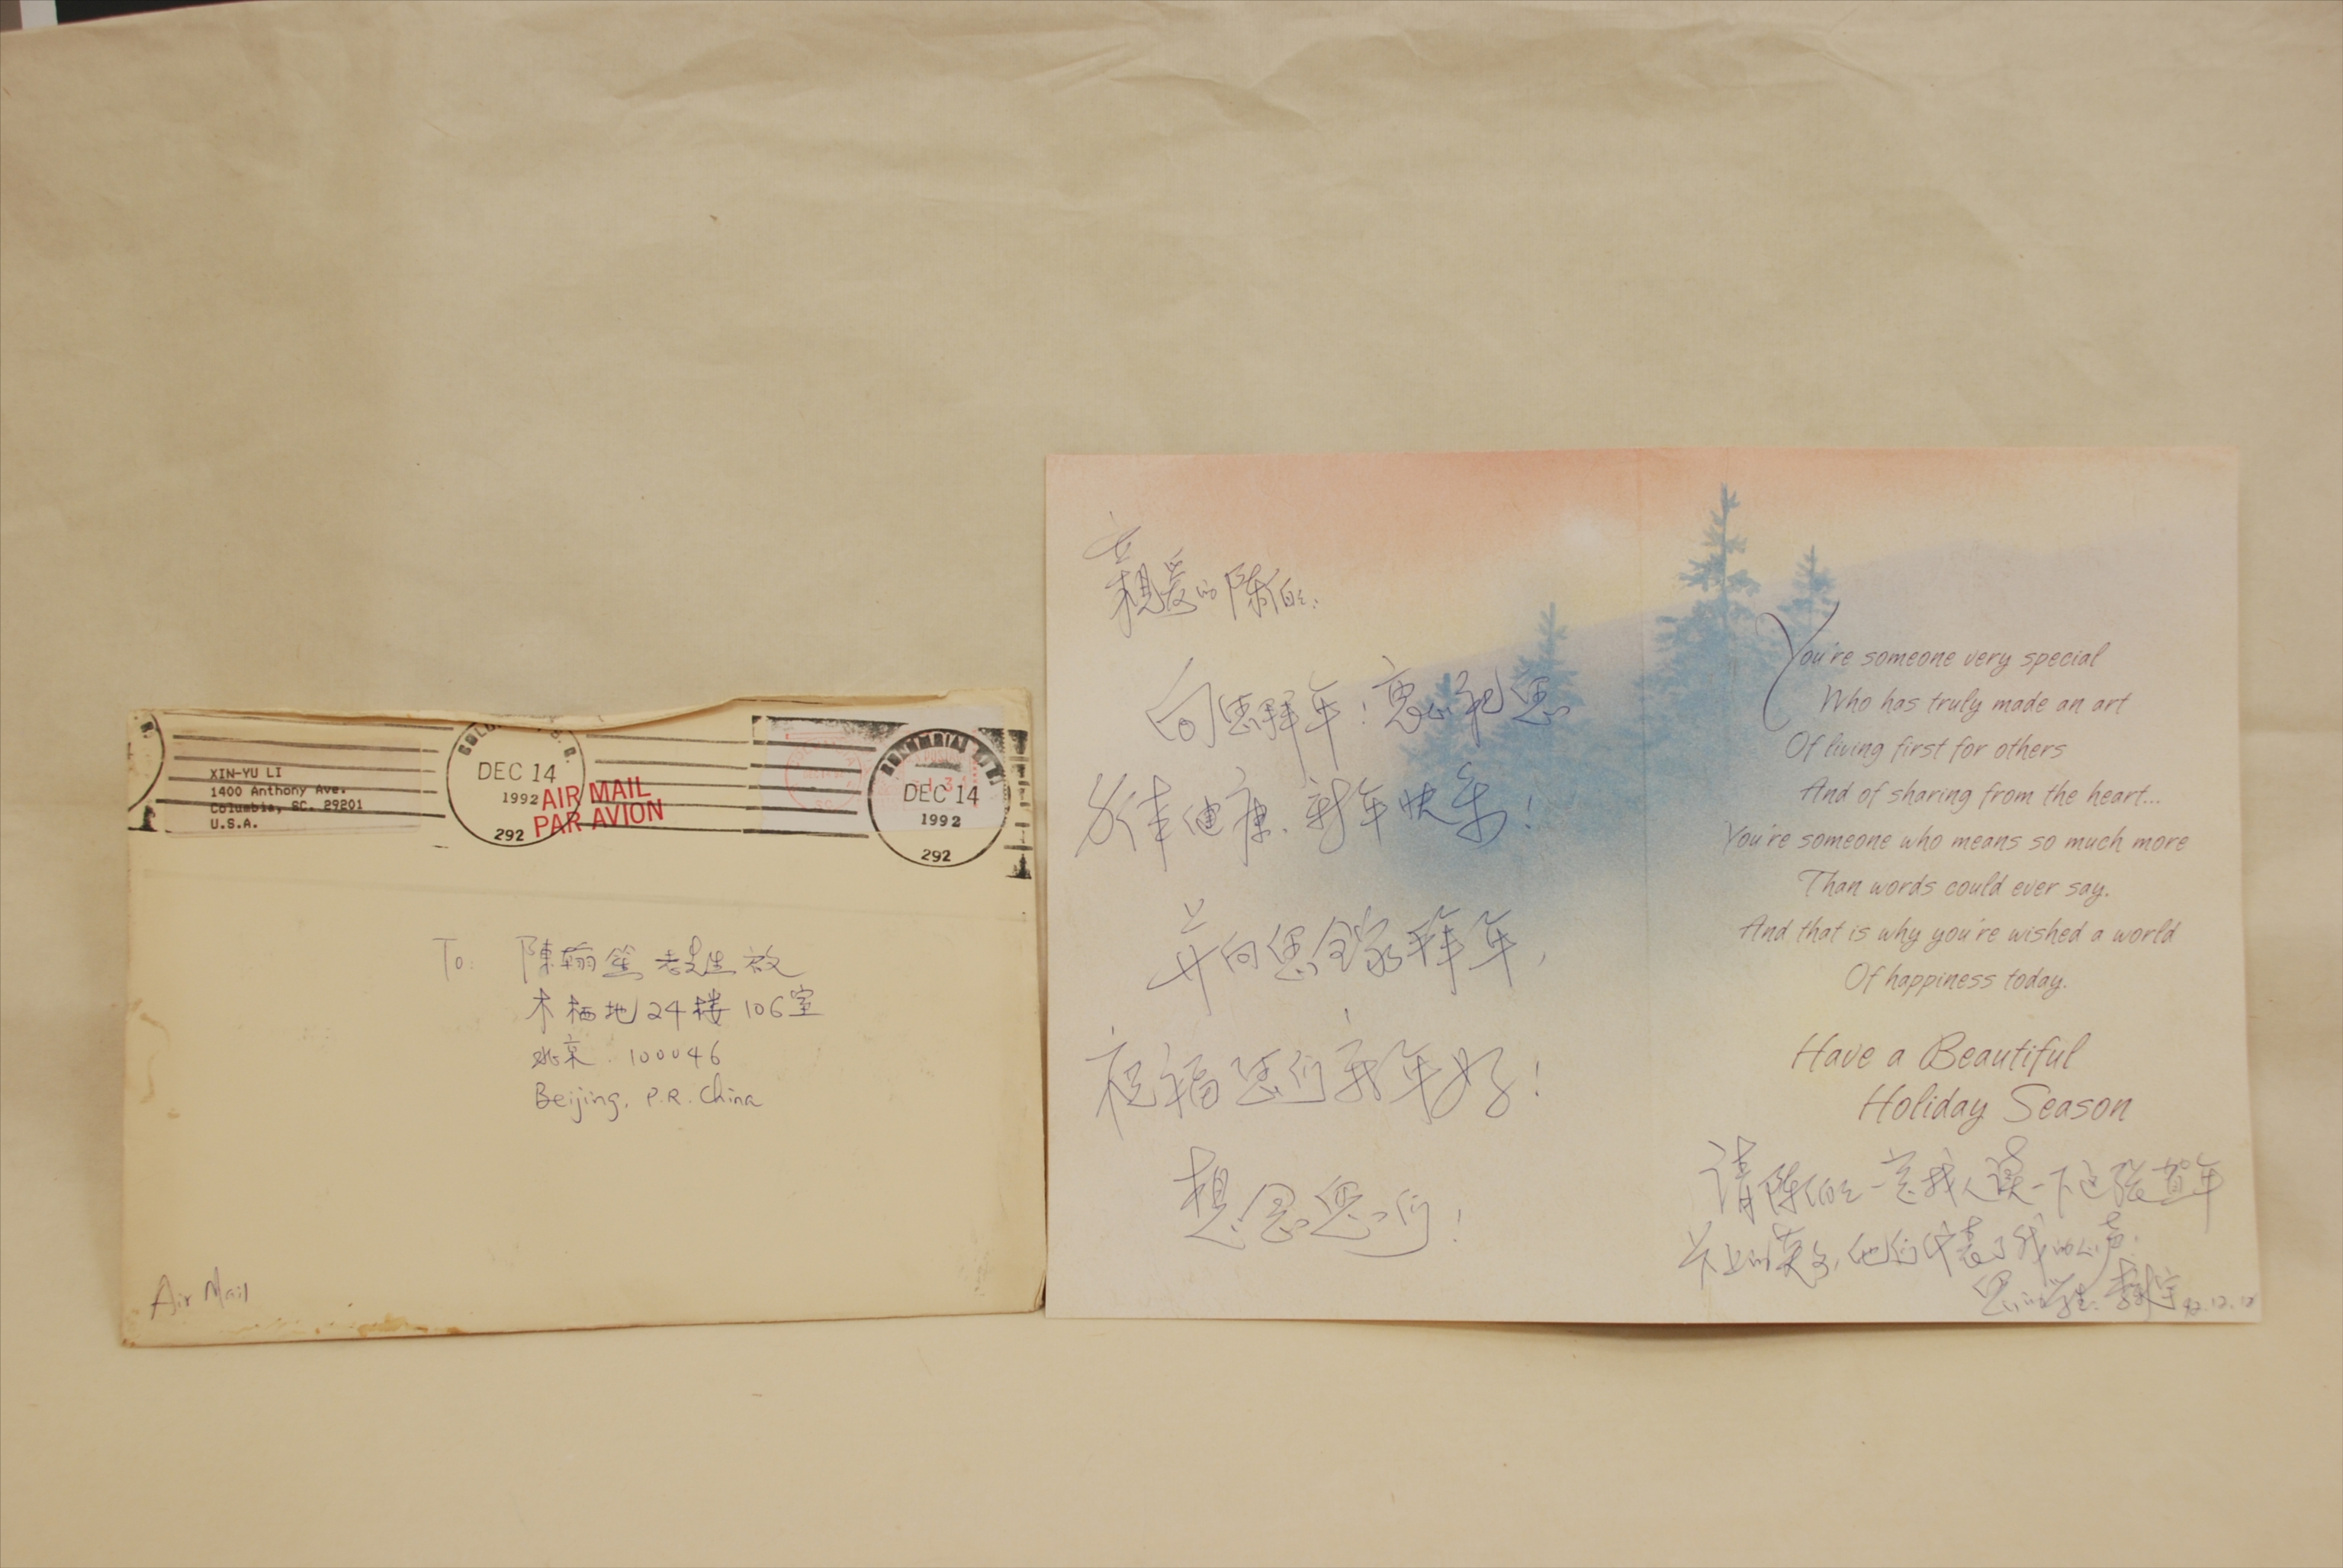 XIN-YU LI
1400 Anthony Ave.
Columbia, SC. 29201
U.S.A.
DEC 14
1992
292
AIR MAIL
PAR AVION
DEC 14
1992
292
To: 陳翰笙 老先生 收
木樨地24楼106室
北京 100046
Beijing, P.R. China
Air Mail
親爱的陈伯伯:
向您拜年!衷心祝您
身体健康、新年快乐!
并向您全家拜年,
祝福您们新年好!
想念您们!
You're someone very special
Who has truly made an art
Of living first for others
And of sharing from the heart...
You're someone who means so much more
Than words could ever say.
And that is why you're wished a world
Of happiness today.
Have a Beautiful
Holiday Season
请陈伯伯一定找人读一下这张贺年
片上的英文,他们代表了我的心声.
您的学生: 李 宇 92.12.12